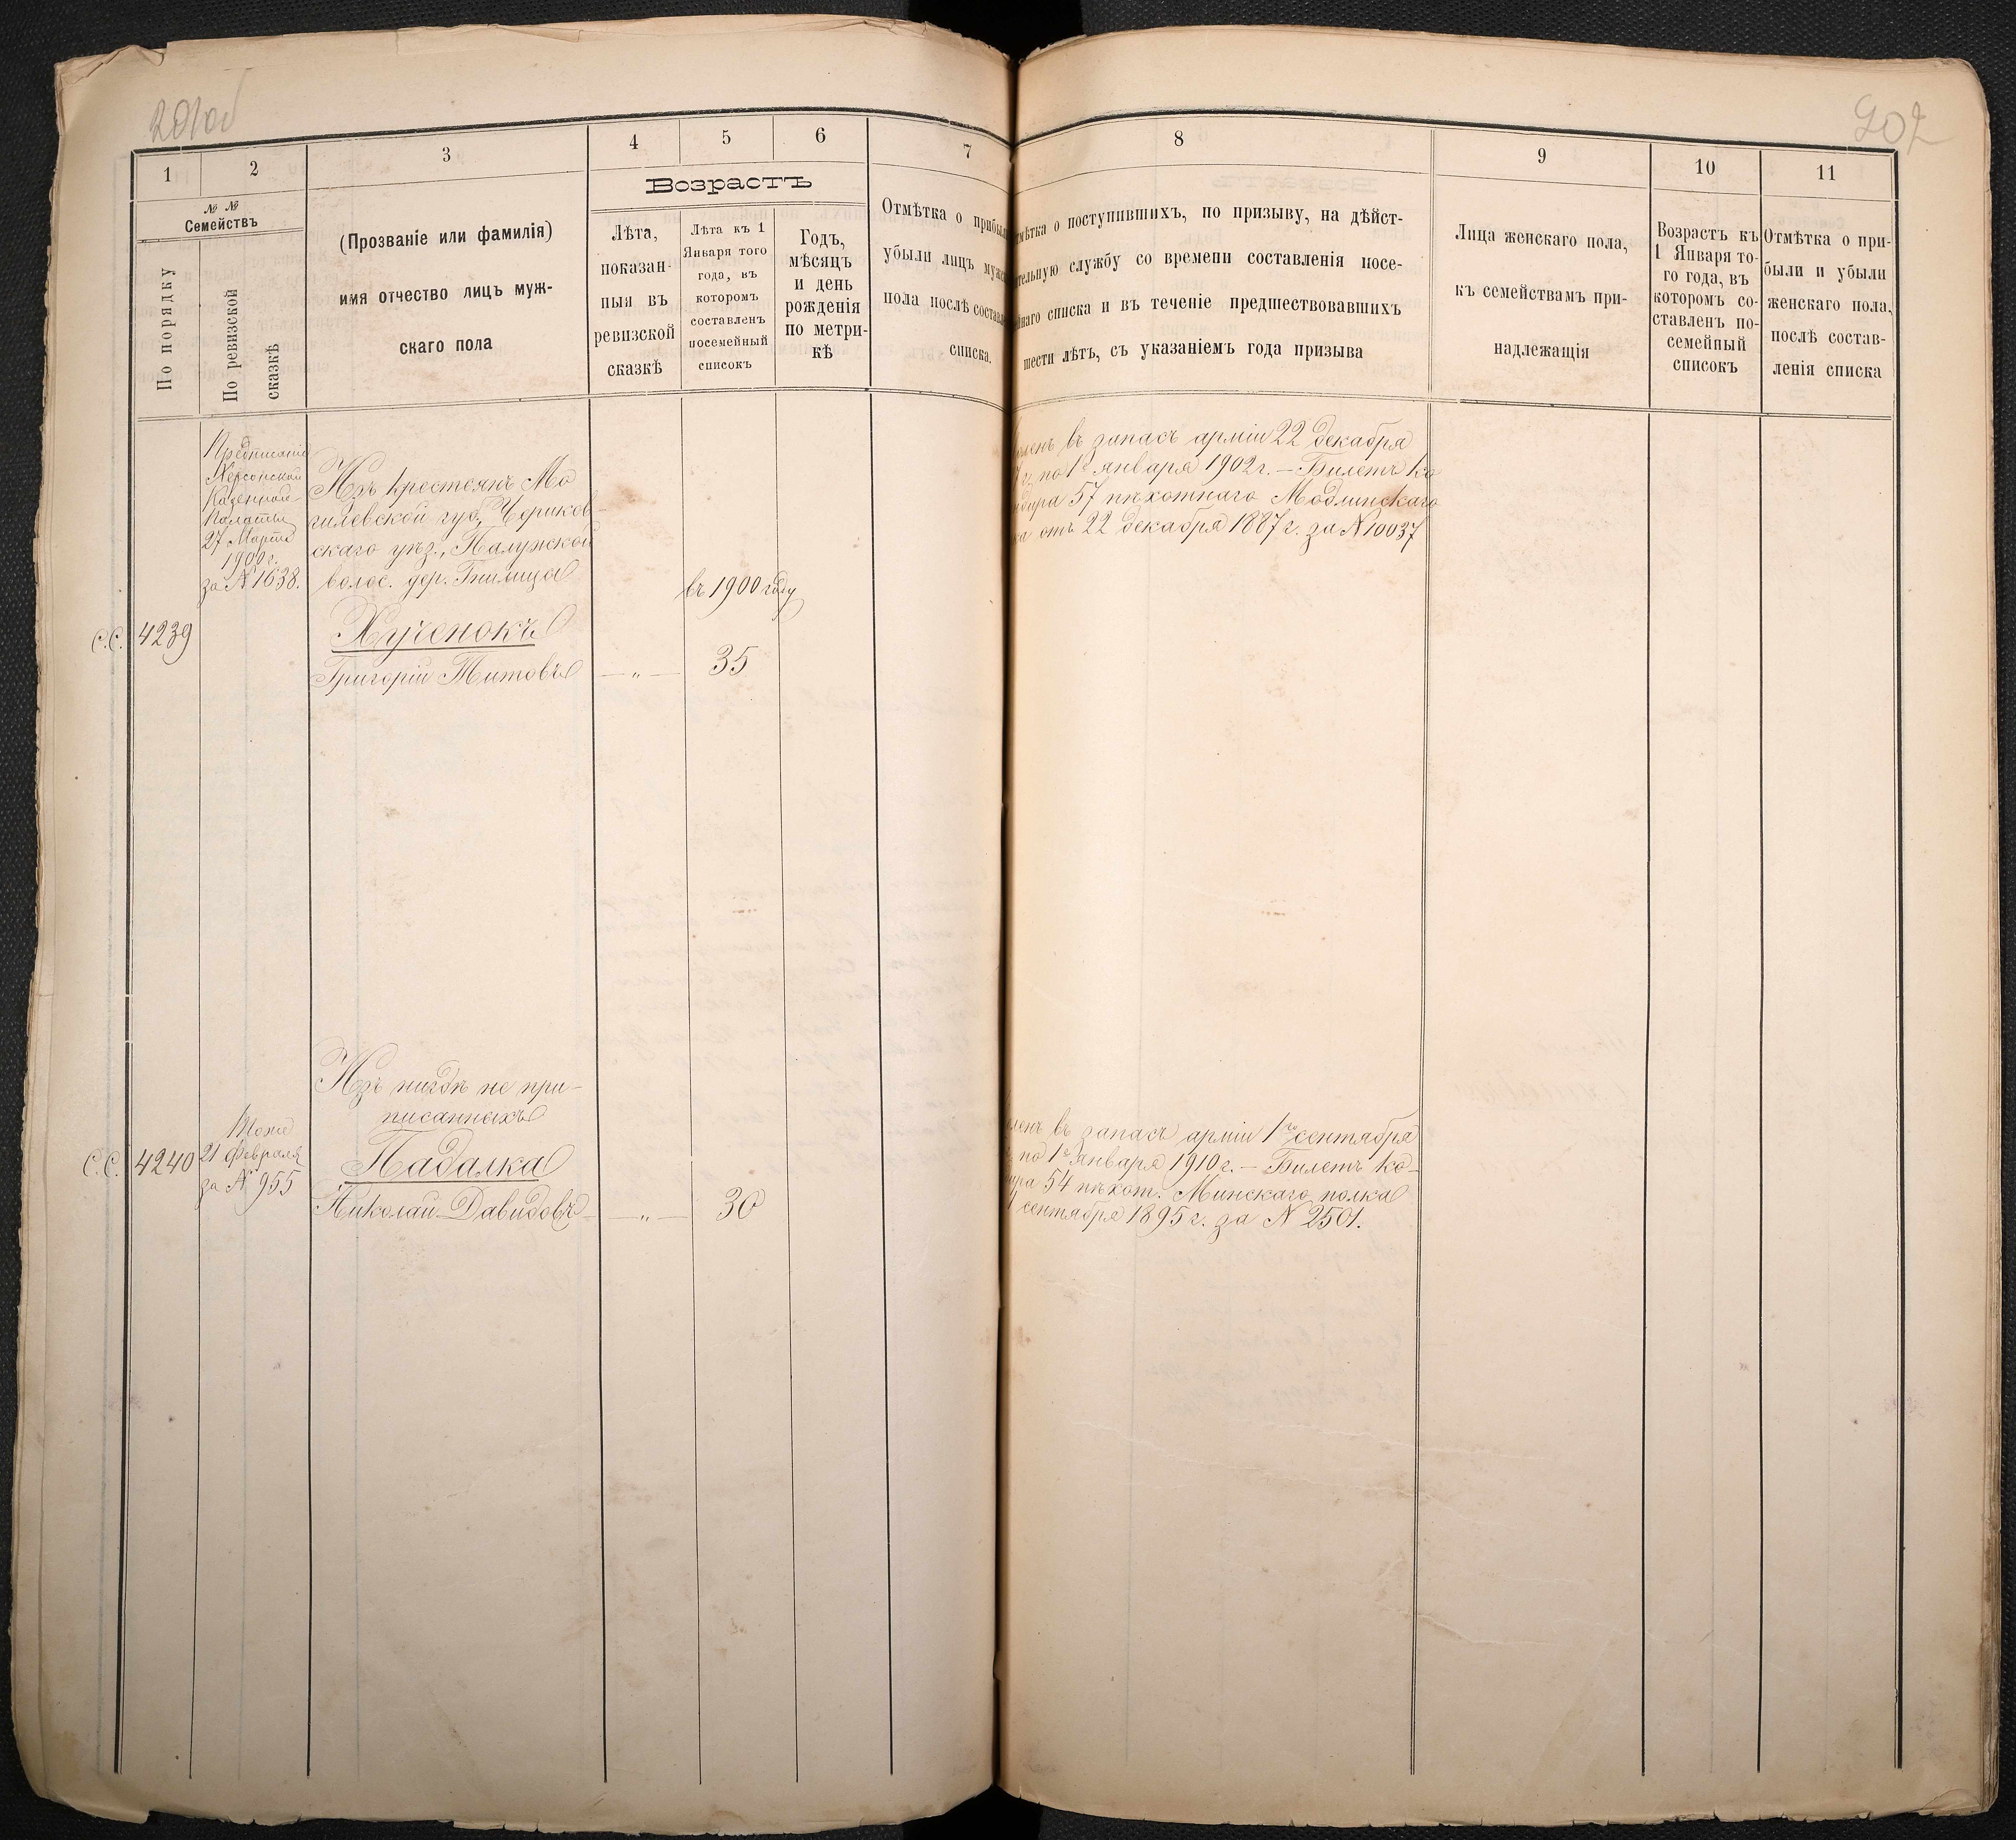 201об
202
1
2
3
4
5
6
7
8
9
10
11
№ №
Семействъ
По порядку
По ревизской
сказкѣ
(Прозваніе или фамилія)
имя отчество лицъ муж-
скаго пола
Возрастъ
Лѣта,
показан-
ныя въ
ревизской
сказкѣ
Лѣта къ 1
Января того
года, въ
которомъ
составленъ
посемейный
списокъ
Годъ,
мѣсяцъ
и день
рожденія
по метри-
кѣ
Отмѣтка о прибыл
убыли лицъ мужс
пола послѣ составле
списка.
мѣтка о поступившихъ, по призыву, на дѣйст-
ительную службу со времени составленія посе-
йнаго списка и въ теченіе предшествовавшихъ
шести лѣтъ, съ указаніемъ года призыва
Лица женскаго пола,
къ семействамъ при-
надлежащія
Возрастъ къ
1 Января то-
го года, въ
которомъ со-
ставленъ по-
семейный
списокъ
Отмѣтка о при-
были и убыли
женскаго пола,
послѣ состав-
ленія списка
Предписаніе
Херсонской
Казенной
Палаты
27 Марта
1900 г.
за № 1638.
Изъ крестьянъ Мо
гилевской губ., Чериков-
скаго уѣз., Палужской
волос. дер. Гнилица
въ 1900 году
С.С. 4239
Хученокъ
Григорій Титовъ — „ — 35
ленъ въ запасъ арміи 22 декабря
7 г. по 1е января 1902 г. – Билетъ ко
ндира 57 пѣхотнаго Модлинскаго
ка отъ 22 декабря 1887 г. за № 10037
Изъ нигдѣ не при-
писанныхъ
Тоже
21 Февраля
за № 955
С.С. 4240
Падалка
Николай Давидовъ — „ — 30
ленъ въ запасъ арміи 1го сентября
по 1е января 1910 г. – Билетъ ко-
ира 54 пѣхот. Минскаго полка
1 сентября 1895 г. за № 2501.